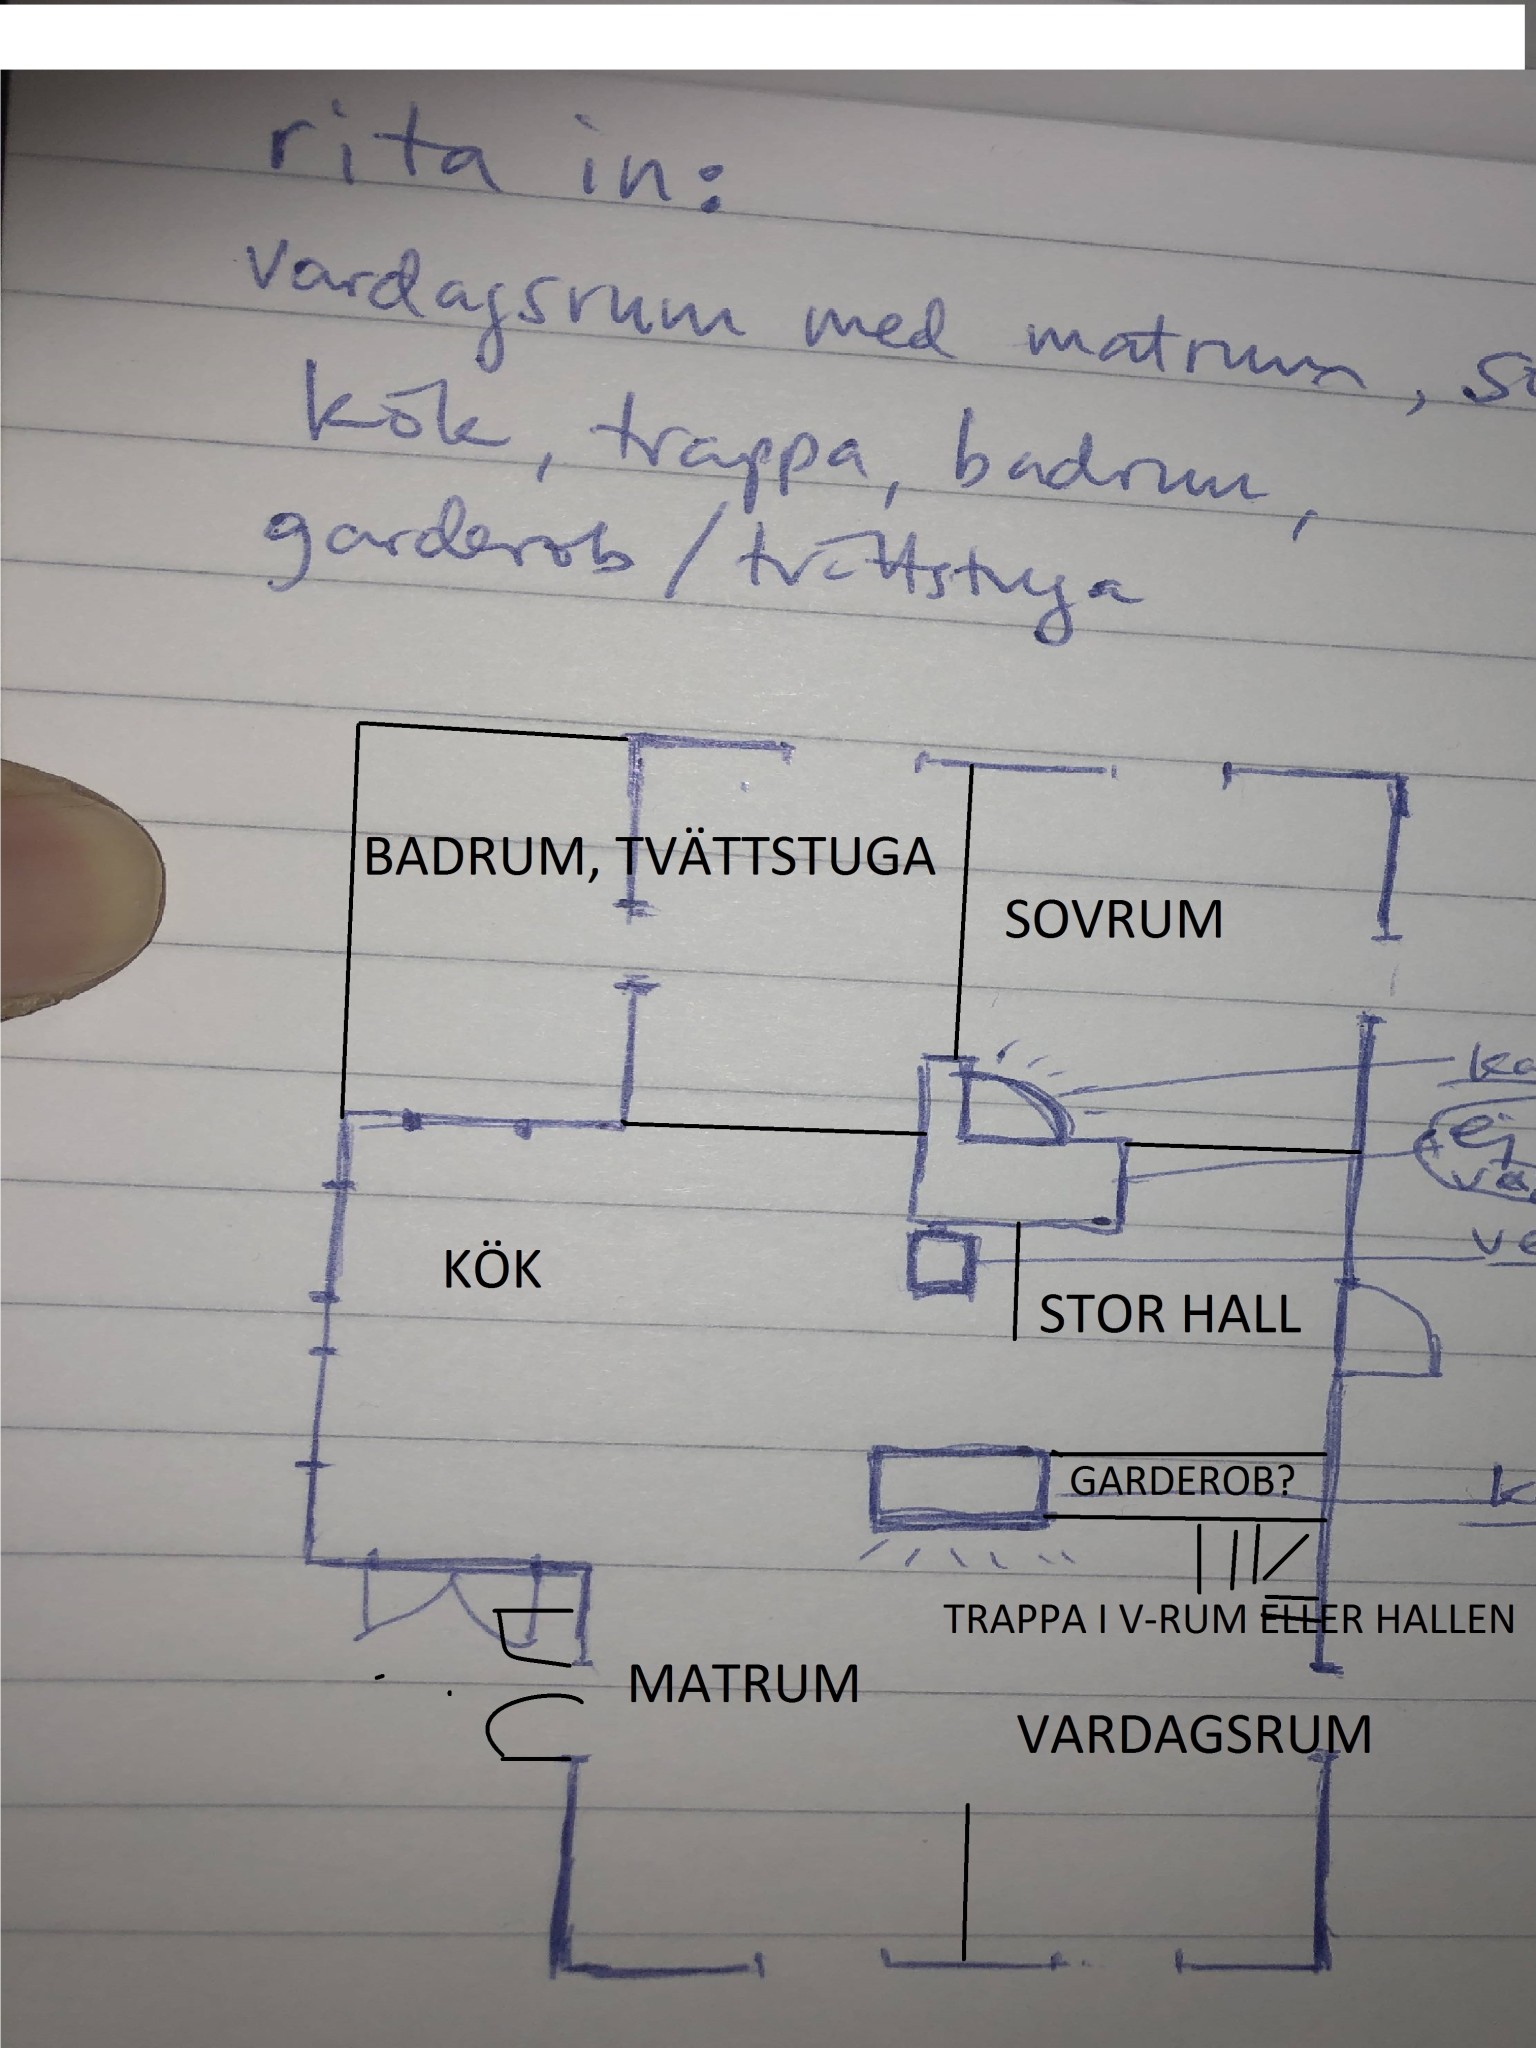 rita in:
vardagsrum med matrum,
kök, trappa, badrum,
garderob/tvättstuga
BADRUM, TVÄTTSTUGA
SOVRUM
ej
KÖK
STOR HALL
GARDEROB?
TRAPPA I V-RUM ELLER HALLEN
MATRUM
VARDAGSRUM